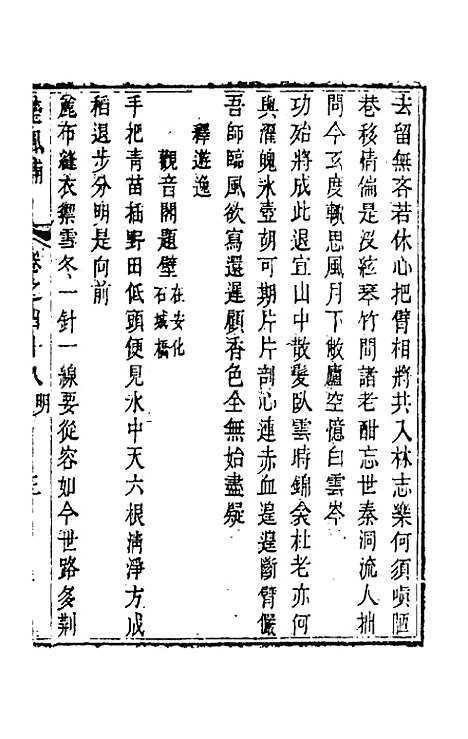 去留無吝若休心把臂相將共入林志樂何須嗔陋
巷移情偏是没絃琴竹間諸老酣忘世秦洞流人拙
問今玄度輙思風月下敝廬空憶白雲岑
功殆將成此退宜山中散髮臥雲時錦衾杜老亦何
與濯魄冰壺胡可期片片剖心連赤血遑遑斷臂儼
吾師臨風欲寫還遲顧香色全無始盡疑
釋遊逸
觀音閣題壁在安化石城橋
手把青苗插野田低頭便見水中天六根淸淨方成
稻退步分明是向前
麄布縫衣禦雪冬一針一線要從容如今世路多荆
卷之四十八 明